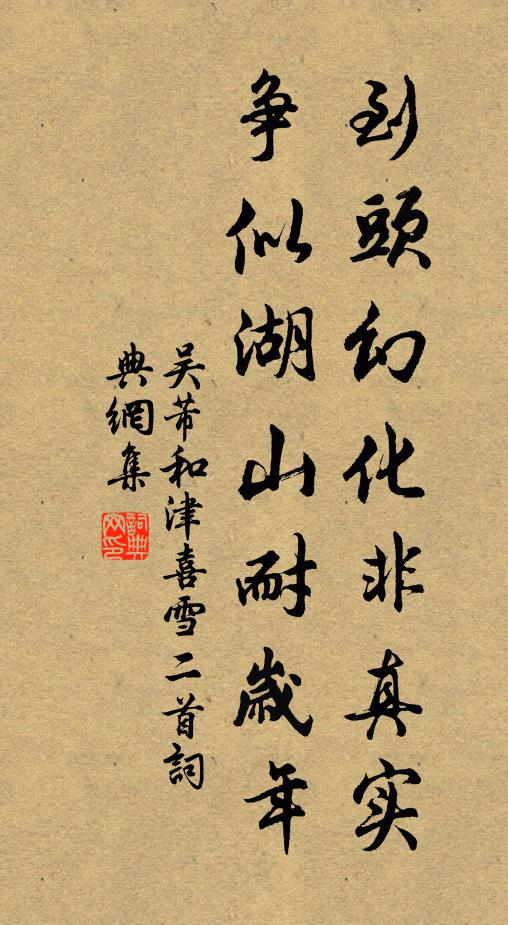 到頭幻化非真实
争似湖山耐歲年
吴芾和津喜雪二首詞
典網集
詞典
网印